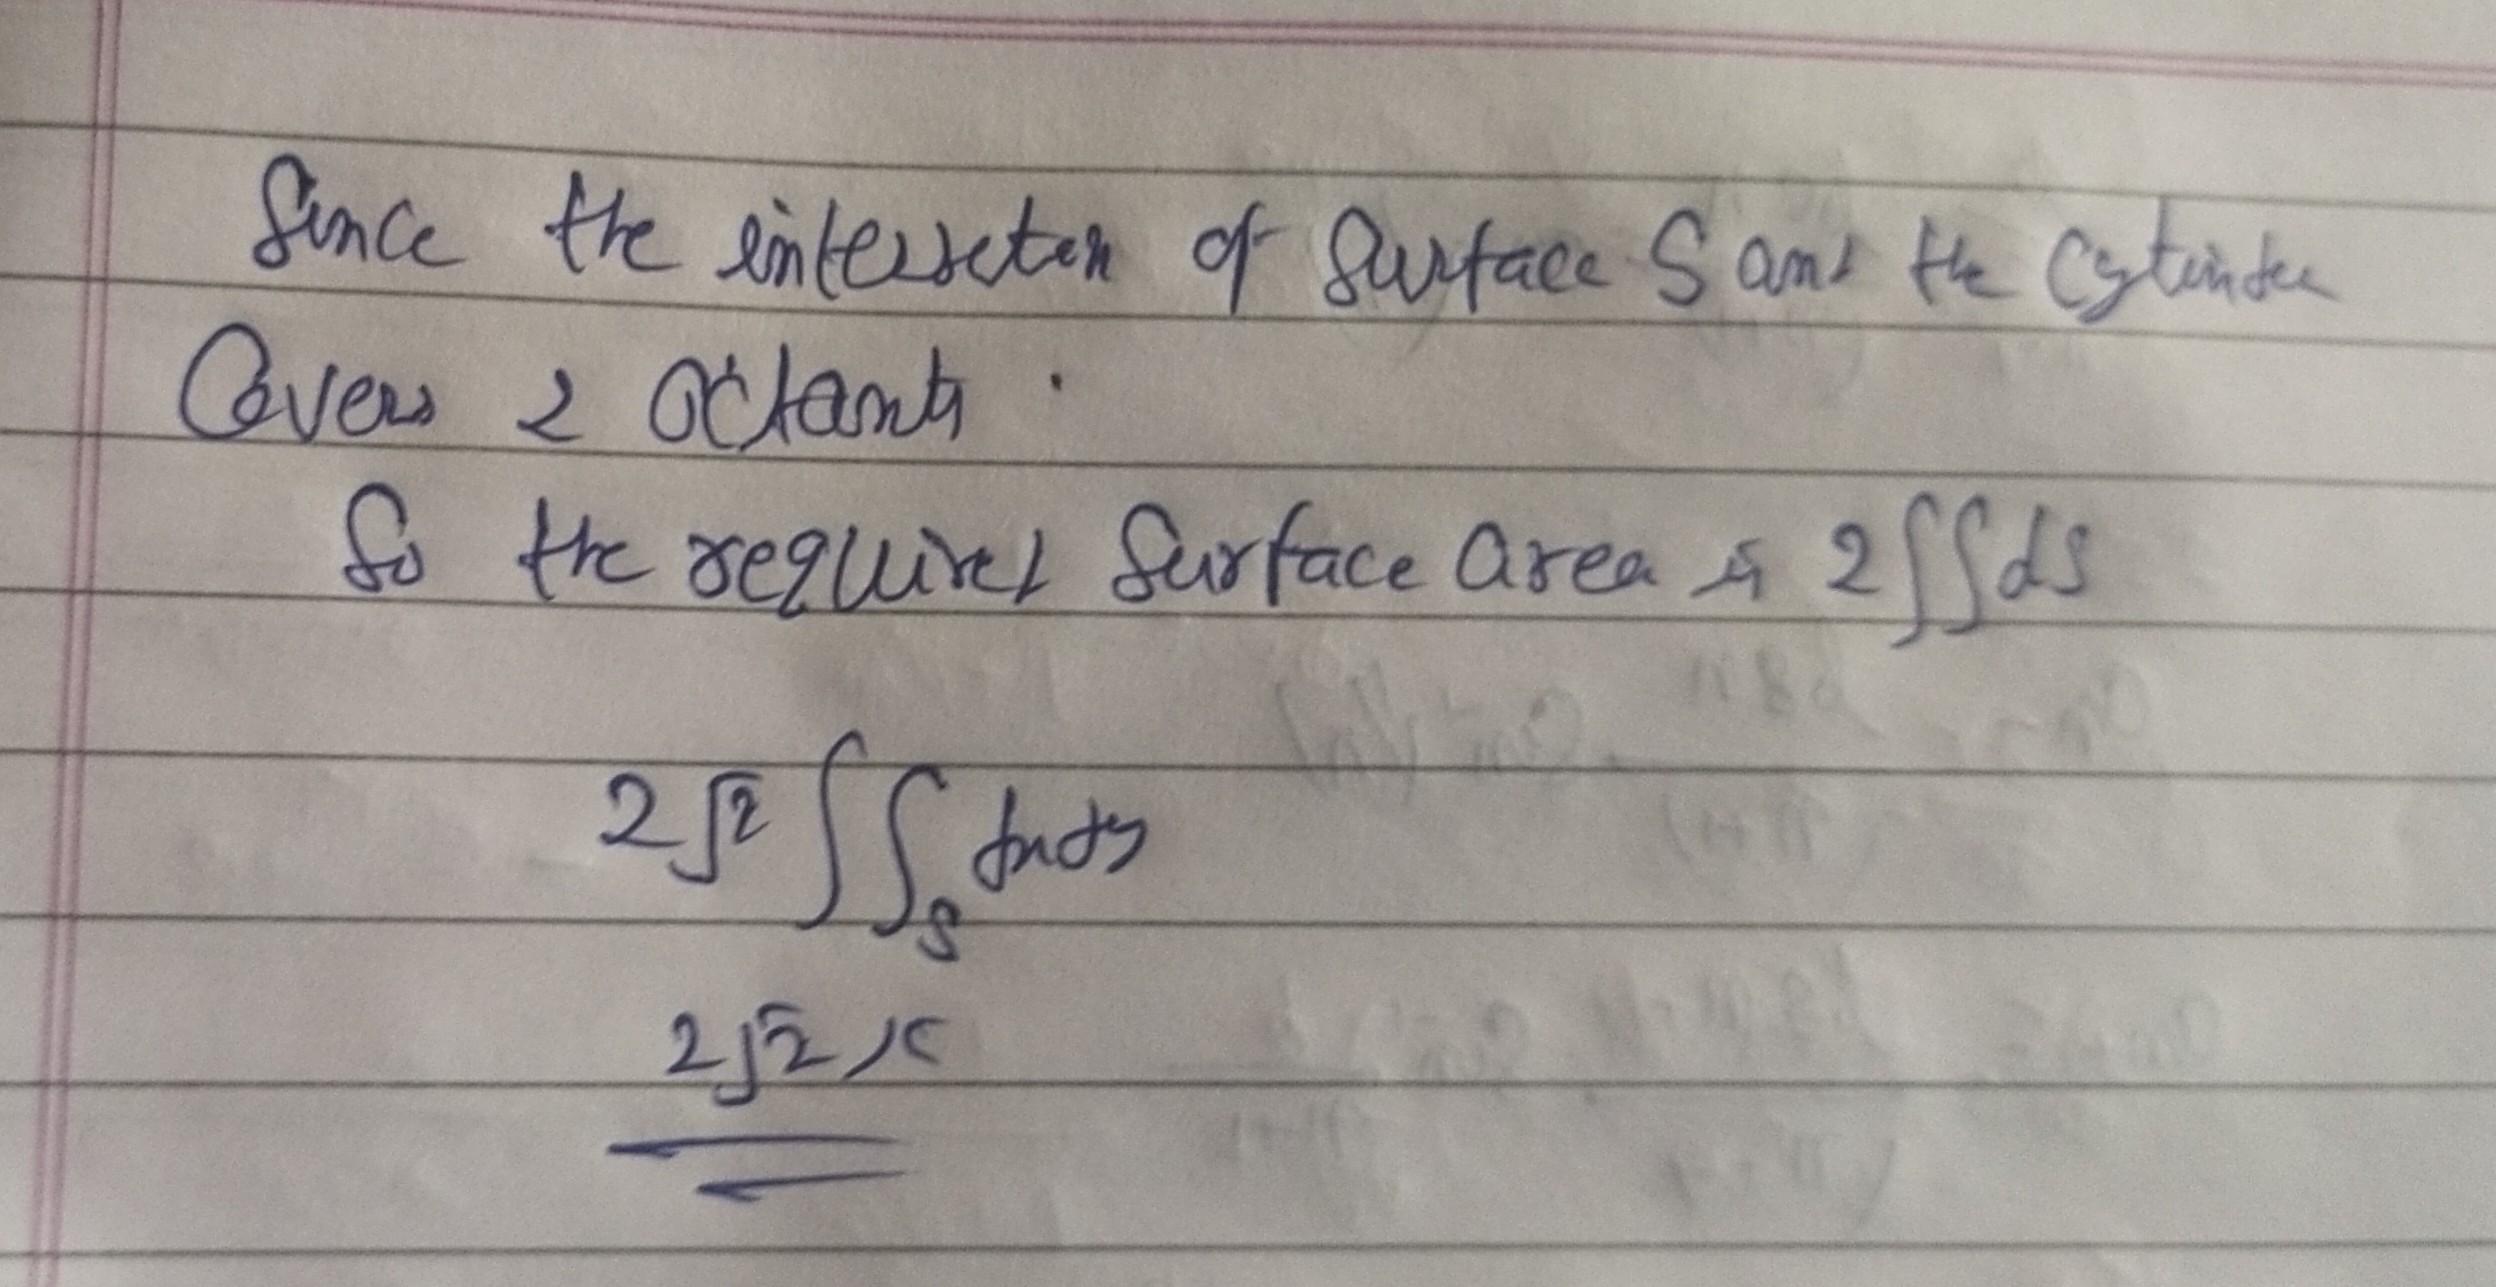 Since the intersection of Surface S and the Cylinder
Covers 2 Octants.
So the required Surface area is 2∬ds
2√2 ∬_S dxdy
2√2 π